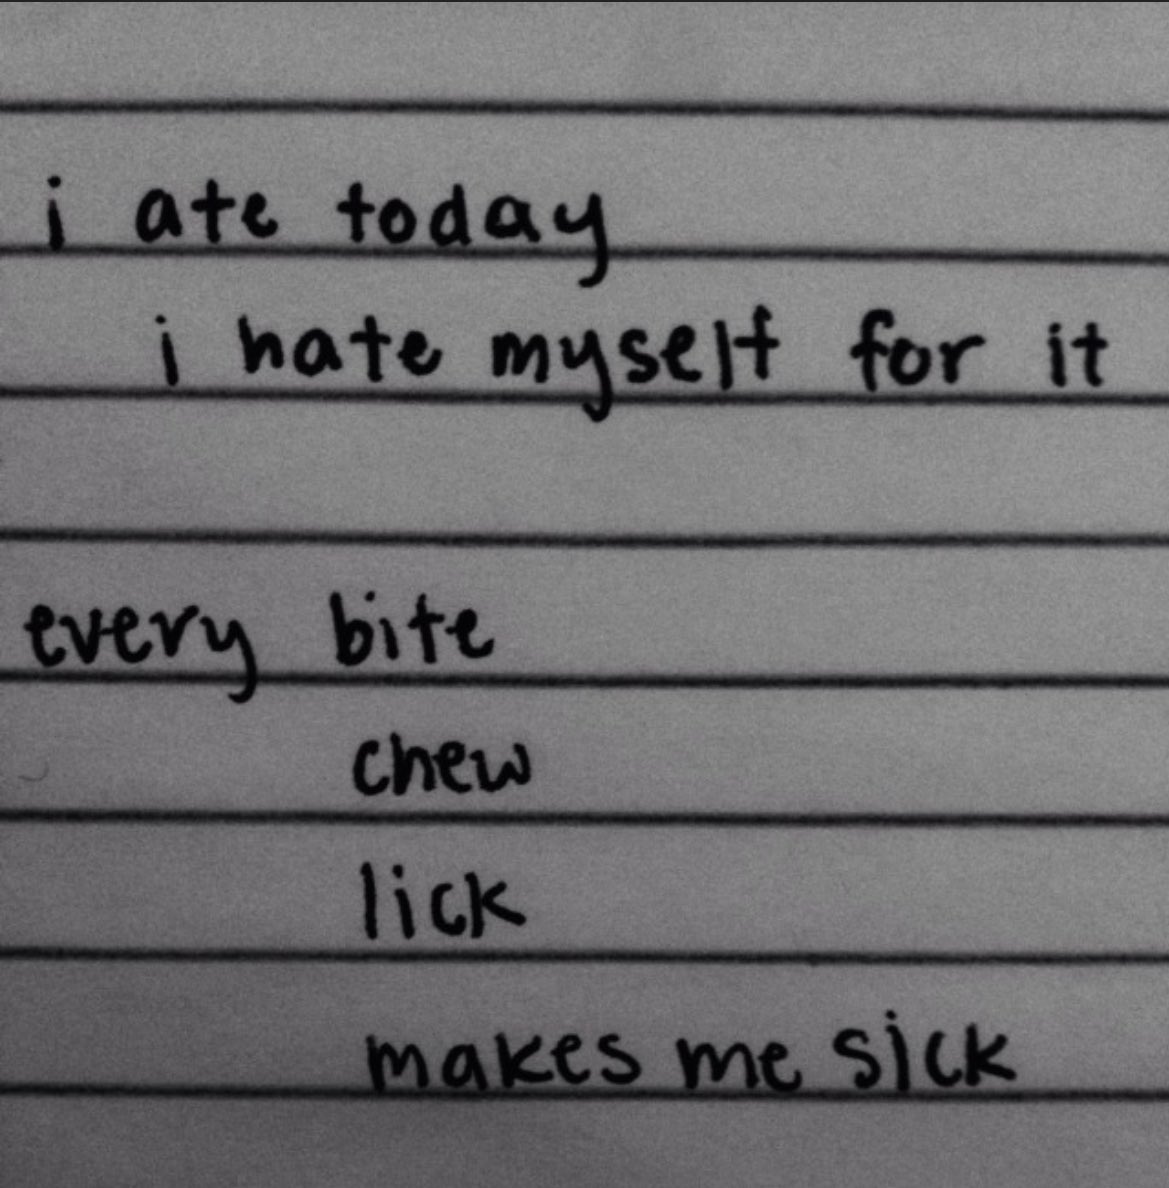 i ate today
i hate myself for it
every bite
chew
lick
makes me sick